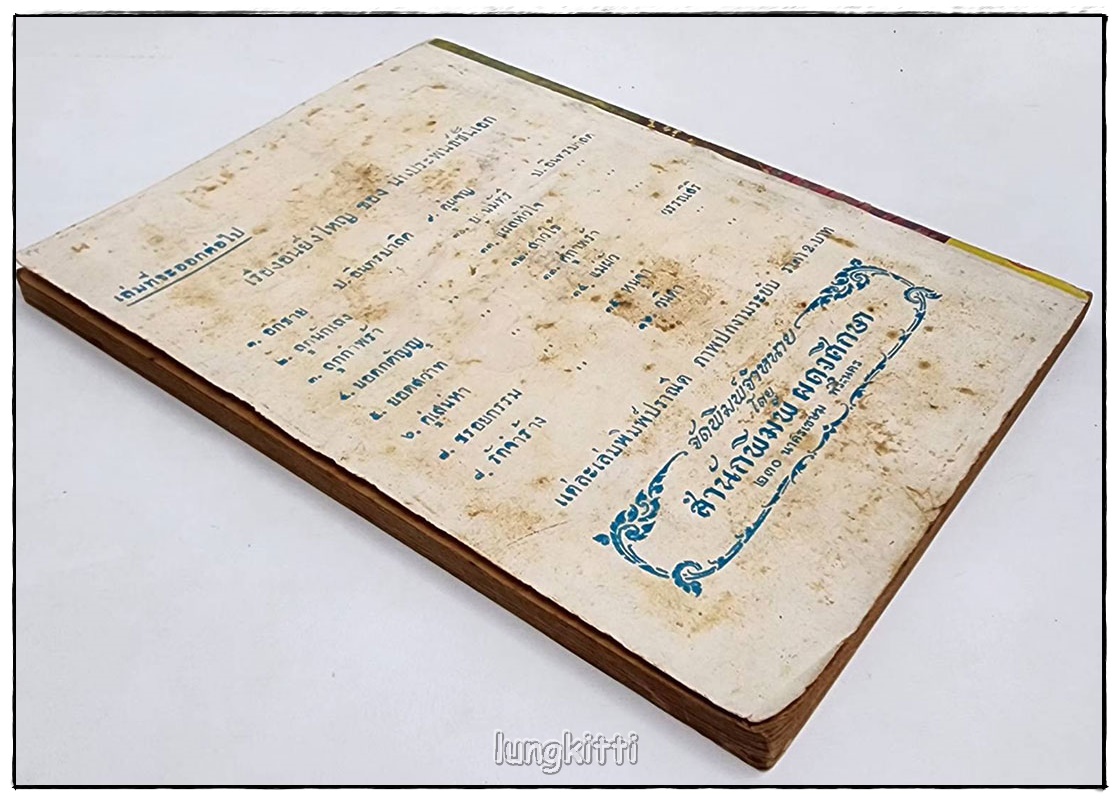 เล่มที่จะออกต่อไป
เรื่องอันยิ่งใหญ่ ของ นักประพันธ์ชั้นเอก
๑. อกราย ป. อินทรปาลิต
๒. ลูกนักเลง ,,
๓. ลูกกำพร้า ,,
๔. ยอดกตัญญู ,,
๕. ยอดสวาท ,,
๖. คู่เสน่หา ,,
๗. ธรรมกรรม ,,
๘. รักค้าง ,,
๙. คู่ขวัญ ป. อินทรปาลิต
๑๐. ,,
๑๑. แม่หัวใจ ,,
๑๒. สาวใช้ ,,
๑๓. วรรณสิริ
๑๔. ,,
๑๕. ,,
๑๖. ,,
แต่ละเล่มพิมพ์ปราณีต ภาพปกงามระยับ ราคา ๒ บาท
จัดพิมพ์จำหน่าย
โดย
สำนักพิมพ์ ผดุงศึกษา
๒๓๐ นาครเขษม พระนคร
lungkitti